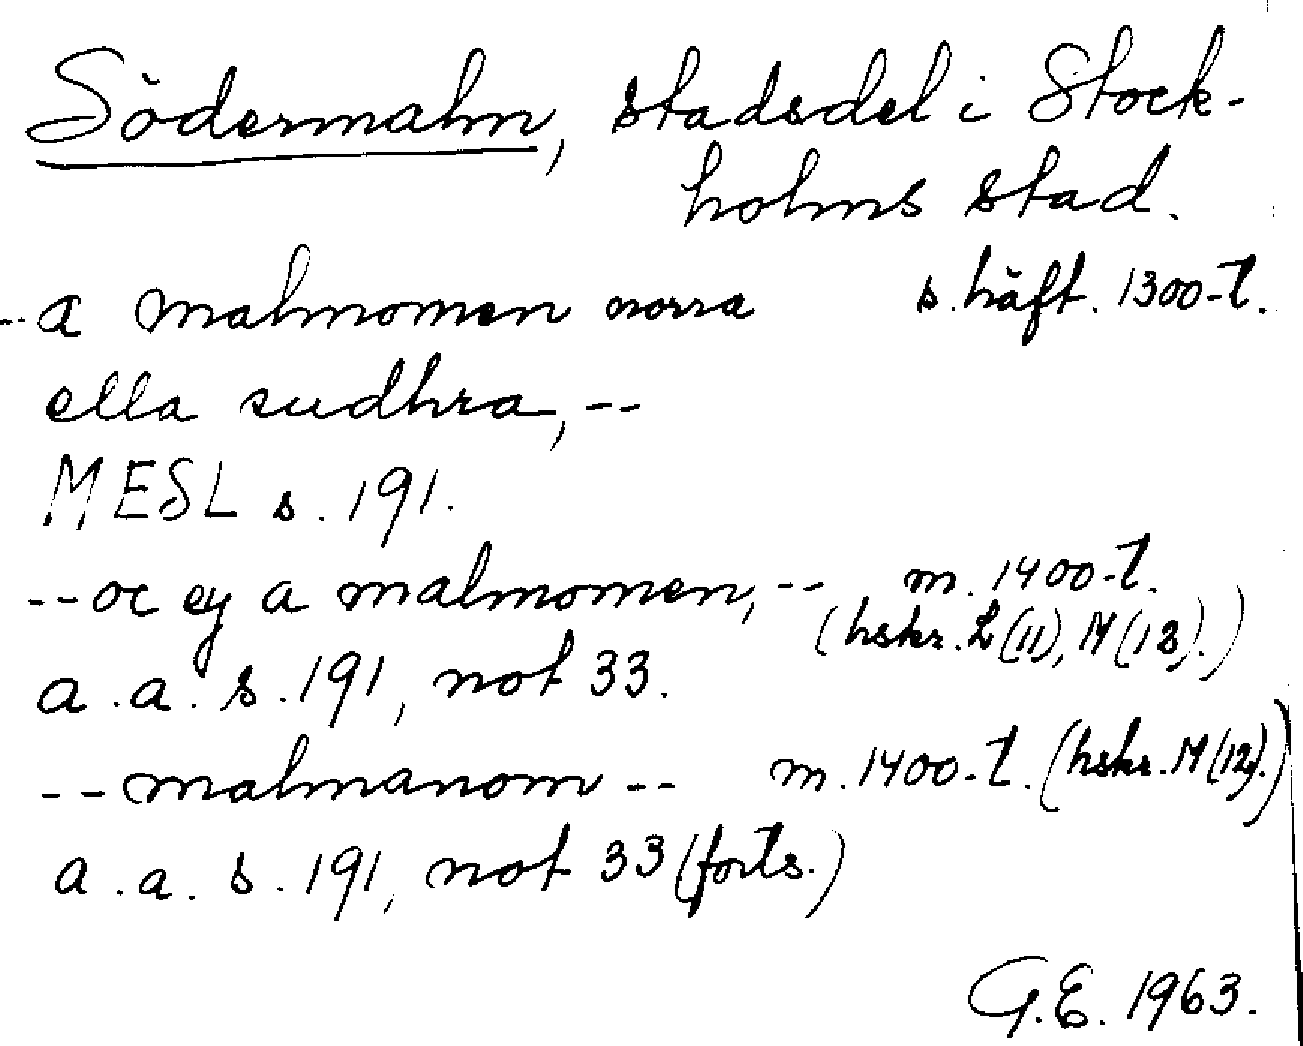 Södermalm, stadsdel i Stock-
holms stad.
--a malmomen norra s. hälft. 1300-t.
ella sudhra, --
MESL s. 191.
--oc ey a malmomen, -- m. 1400-t.
(hskr. L (11), M (12).)
a.a. s. 191, not 33.
--malmanom -- m. 1400-t. (hskr. M (12).)
a.a. s. 191, not 33 (forts.)
G.E. 1963.